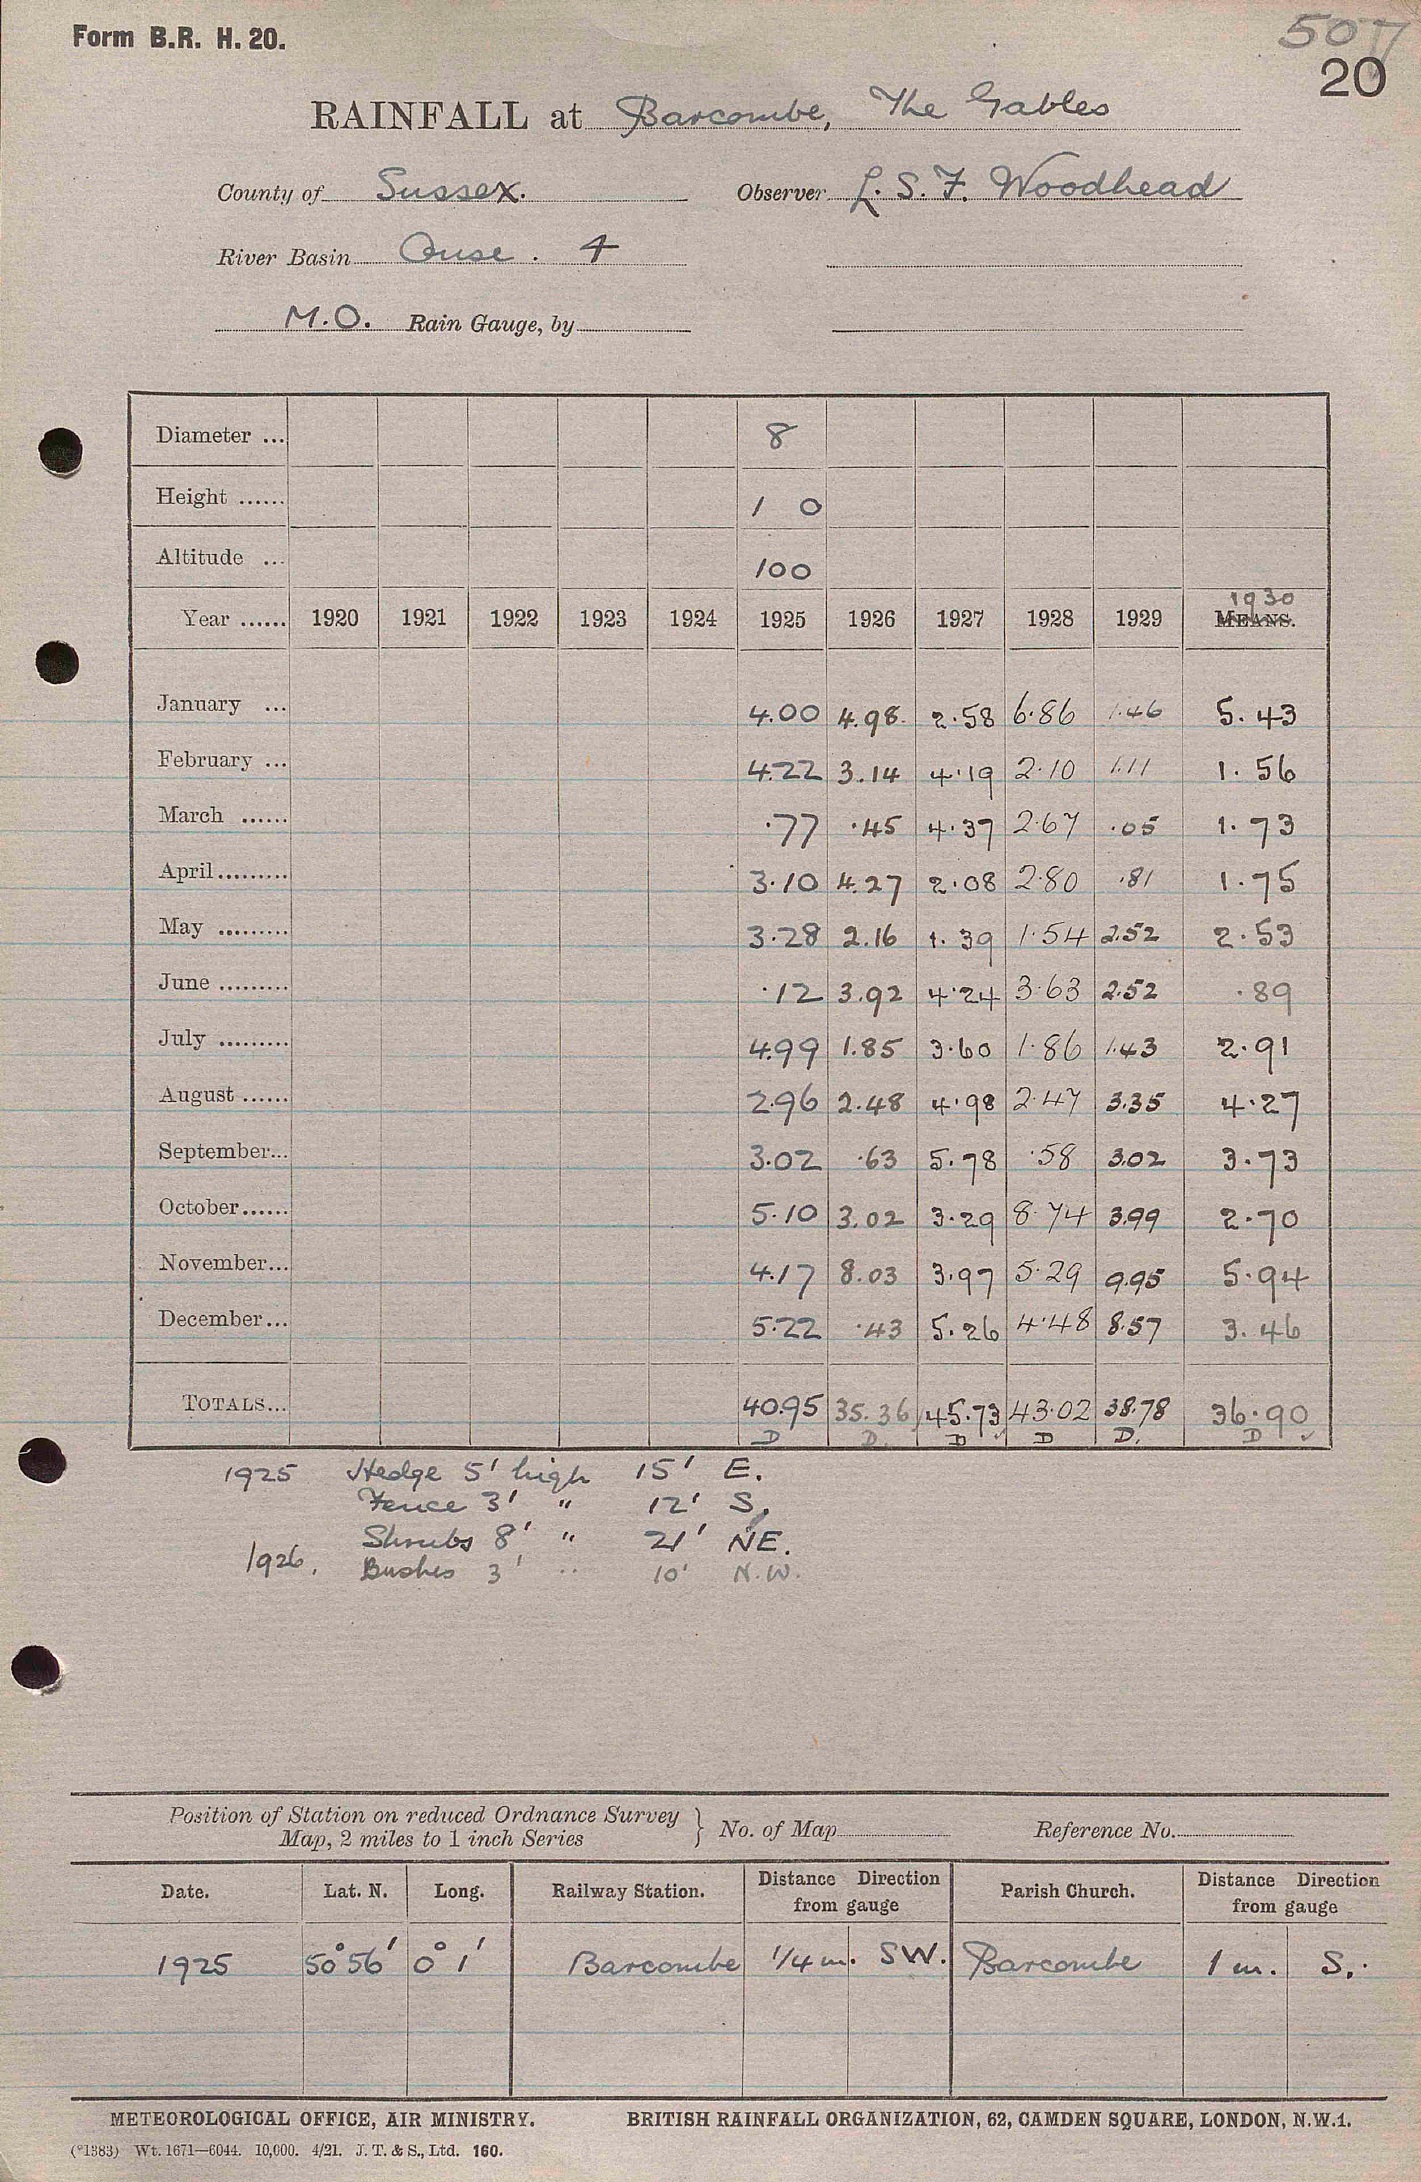 Form B.R. H. 20.
507
20
RAINFALL at Barcombe, The Gables
County of Sussex. Observer L. S. F. Woodhead
River Basin Ouse. 4
M.O. Rain Gauge, by
Diameter ... 8
Height ...... 1 0
Altitude ... 100
1930
Year ...... 1920 1921 1922 1923 1924 1925 1926 1927 1928 1929 MEANS.
January ... 4.00 4.98 2.58 6.86 1.46 5.43
February ... 4.22 3.14 4.19 2.10 1.11 1.56
March ...... .77 .45 4.37 2.67 .05 1.73
April......... 3.10 4.27 2.08 2.80 .81 1.75
May ......... 3.28 2.16 1.39 1.54 2.52 2.53
June ......... .12 3.92 4.24 3.63 2.52 .89
July ......... 4.99 1.85 3.60 1.86 1.43 2.91
August ...... 2.96 2.48 4.98 2.47 3.35 4.27
September... 3.02 .63 5.78 .58 3.02 3.73
October...... 5.10 3.02 3.29 8.74 3.99 2.70
November... 4.17 8.03 3.97 5.29 9.95 5.94
December... 5.22 .43 5.26 4.48 8.57 3.46
TOTALS... 40.95 35.36 45.73 43.02 38.78 36.90
D D. D D D. D
1925 Hedge 5' high 15' E.
Fence 3' " 12' S.
Shrubs 8' " 21' NE.
1926. Bushes 3' .. 10' N.W.
Position of Station on reduced Ordnance Survey
Map, 2 miles to 1 inch Series } No. of Map Reference No.
Date. Lat. N. Long. Railway Station. Distance Direction from gauge Parish Church. Distance Direction from gauge
1925 50°56' 0°1' Barcombe 1/4 m. SW. Barcombe 1 m. S.
METEOROLOGICAL OFFICE, AIR MINISTRY. BRITISH RAINFALL ORGANIZATION, 62, CAMDEN SQUARE, LONDON, N.W.1.
(*1383) Wt. 1671—6044. 10,000. 4/21. J. T. & S., Ltd. 160.